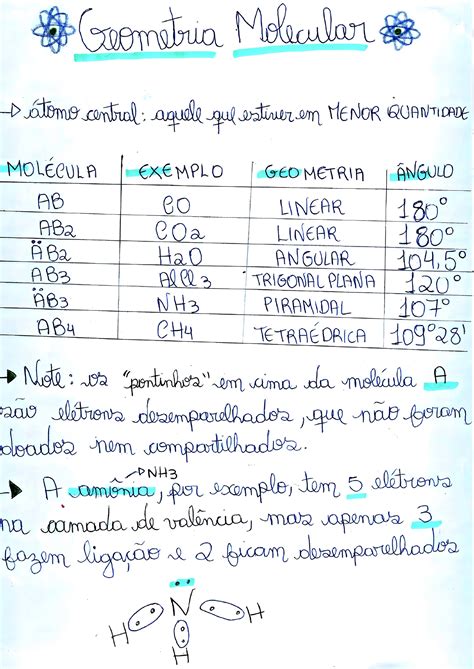 Geometria Molecular
→ átomo central: aquele que estiver em MENOR QUANTIDADE
MOLÉCULA EXEMPLO GEOMETRIA ÂNGULO
AB CO LINEAR 180°
AB2 CO2 LINEAR 180°
ÄB2 H2O ANGULAR 104,5°
AB3 AlCl3 TRIGONAL PLANA 120°
ÄB3 NH3 PIRAMIDAL 107°
AB4 CH4 TETRAÉDRICA 109°28'
→ Note: os "pontinhos" em cima da molécula A
são elétrons desemparelhados, que não foram
doados nem compartilhados.
→ NH3
→ A amônia, por exemplo, tem 5 elétrons
na camada de valência, mas apenas 3
fazem ligação e 2 ficam desemparelhados
N
H H
H